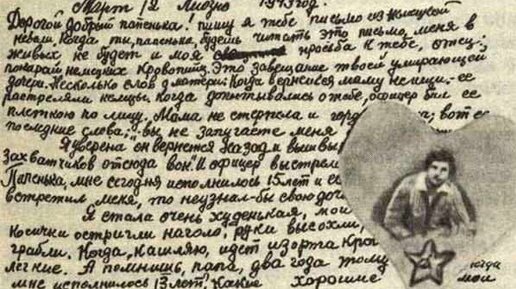 Март, 12, Лиозно, 1943 год.
Дорогой, добрый папенька! Пишу я тебе письмо из немецкой
неволи. Когда ты, папенька, будешь читать это письмо, меня в
живых не будет. И моя просьба к тебе, отец:
покарай немецких кровопийц. Это завещание твоей умирающей
дочери. Несколько слов о матери. Когда вернешься, маму не ищи. Ее
растреляли немцы. Когда допытывались о тебе, офицер бил ее
плеткою по лицу. Мама не стерпела и гордо вот ее
последние слова: "Вы не запугаете меня
Я уверена, он вернется назад и вышвы
захватчиков отсюда вон". И офицер выстрел
Папенька, мне сегодня исполнилось 15 лет и ес
встретил меня, то не узнал бы свою доч
Я стала очень худенькая, мои
Косички остригли наголо, руки высохли,
грабли. Когда кашляю, идет изо рта кро
легкие. А помнишь, папа, два года тому, когда
мне исполнилось 13 лет? Какие хорошие мои